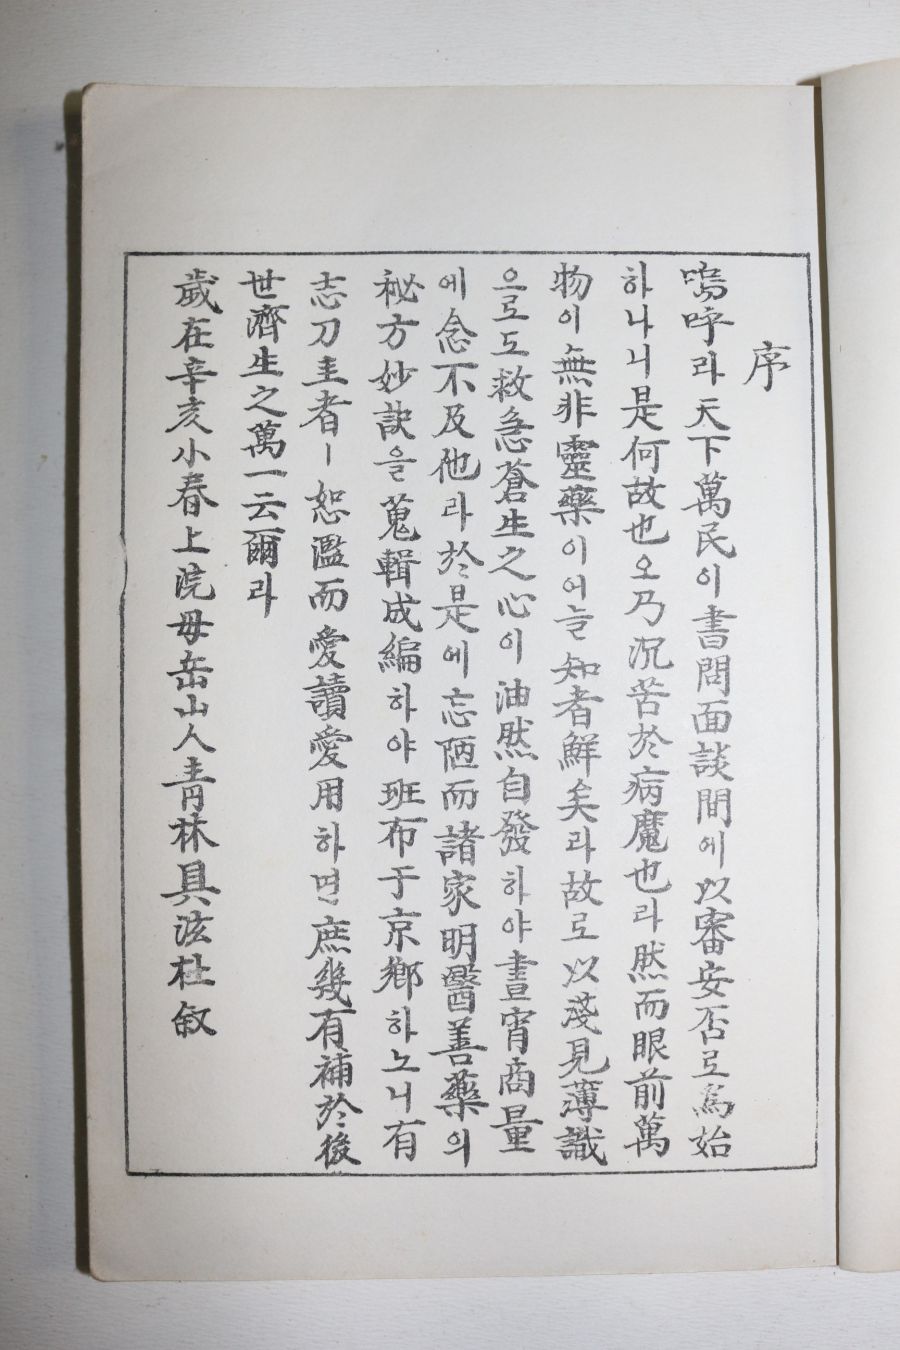 序
嗚呼라天下萬民이書問面談間에以審安否로爲始
하나니是何故也오乃沉苦於病魔也라然而眼前萬
物이無非靈藥이어늘知者鮮矣라故로以淺見薄識
으로도救急蒼生之心이油然自發하야晝宵商量
에念不及他라於是에忘陋而諸家明醫善藥의
秘方妙訣을蒐輯成編하야班布于京鄕하노니有
志刀圭者ㅣ恕濫而愛讀愛用하면庶幾有補於後
世濟生之萬一云爾라
歲在辛亥小春上浣母岳山人靑林具泫杜敍